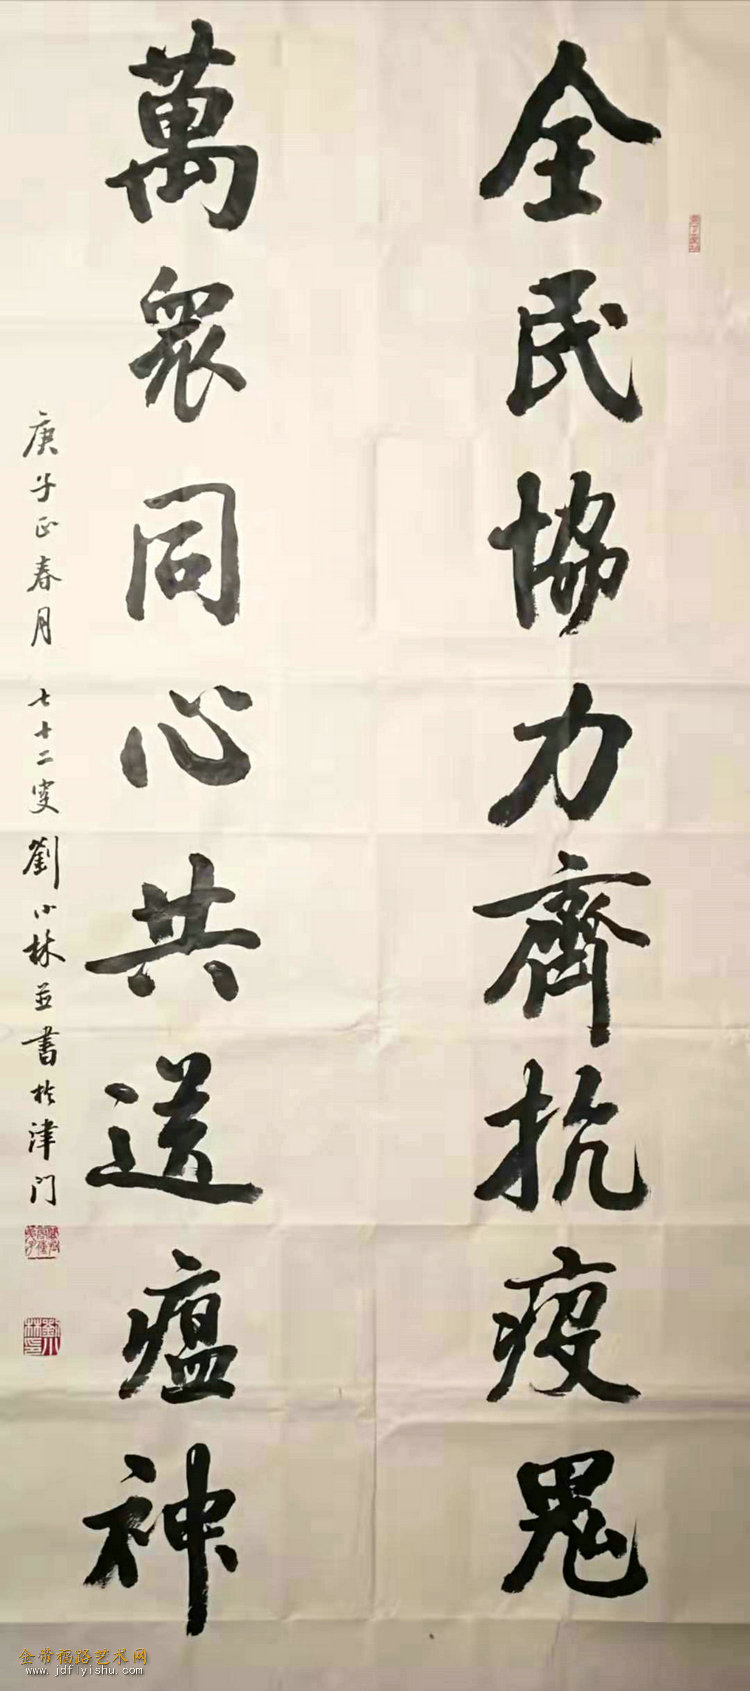 全民協力齊抗疫鬼
萬眾同心共送瘟神
庚子正春月 七十二叟 劉小林並書於津门
金带福路艺术网
www.jdflyishu.com